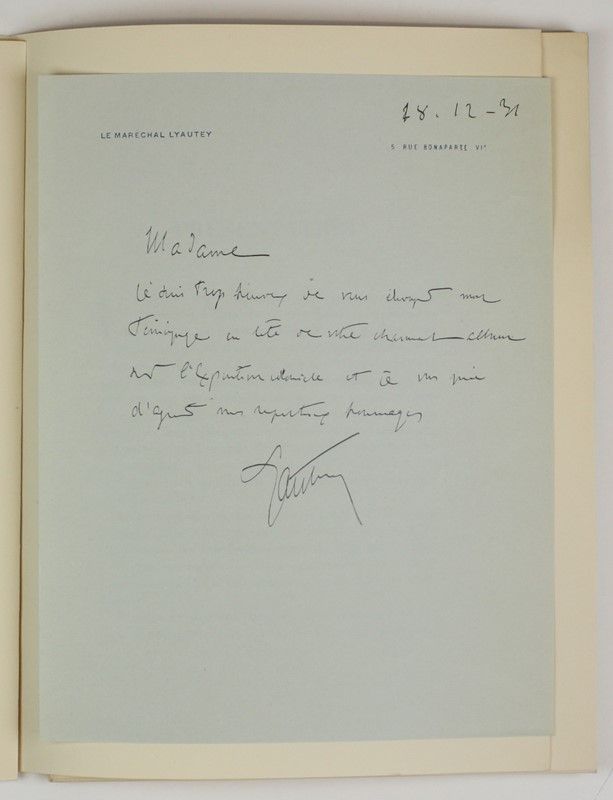 LE MARÉCHAL LYAUTEY
28.12-31
5 RUE BONAPARTE VIᵉ
Madame
Je suis trop heureux de vous mon
témoignage en tête de votre charmant album
sur l'Exposition coloniale et je vous prie
d'agréer mes respectueux hommages
Lyautey